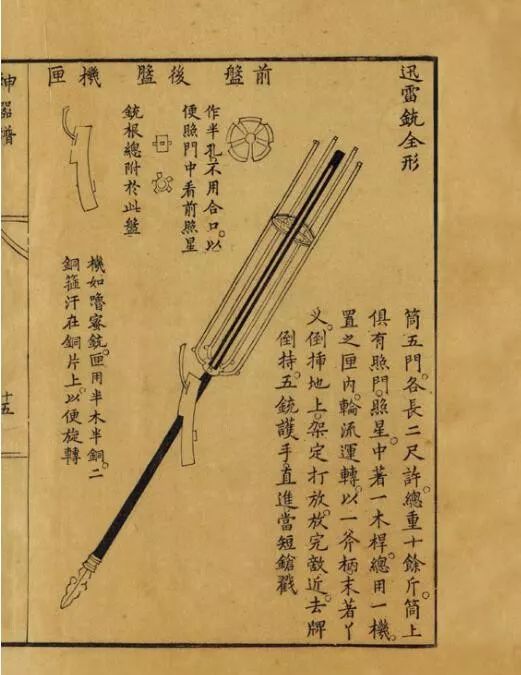 迅雷銃全形
筒五門。各長二尺許。總重十餘斤。筒上
俱有照門。照星。中著一木桿。總用一機。
置之匣內。輪流運轉。以一斧柄末著丫
叉。倒插地上。架定打放。放完敵近。去牌
倒持五銃護手。直進當短鎗戳
前盤
作半孔。不用合口。以
便照門中看前照星
後盤
銃根總附於此盤
機匣
機如嚕密銃。匣用半木半銅。二
銅箍汗在銅片上。以便旋轉
神器譜
十五